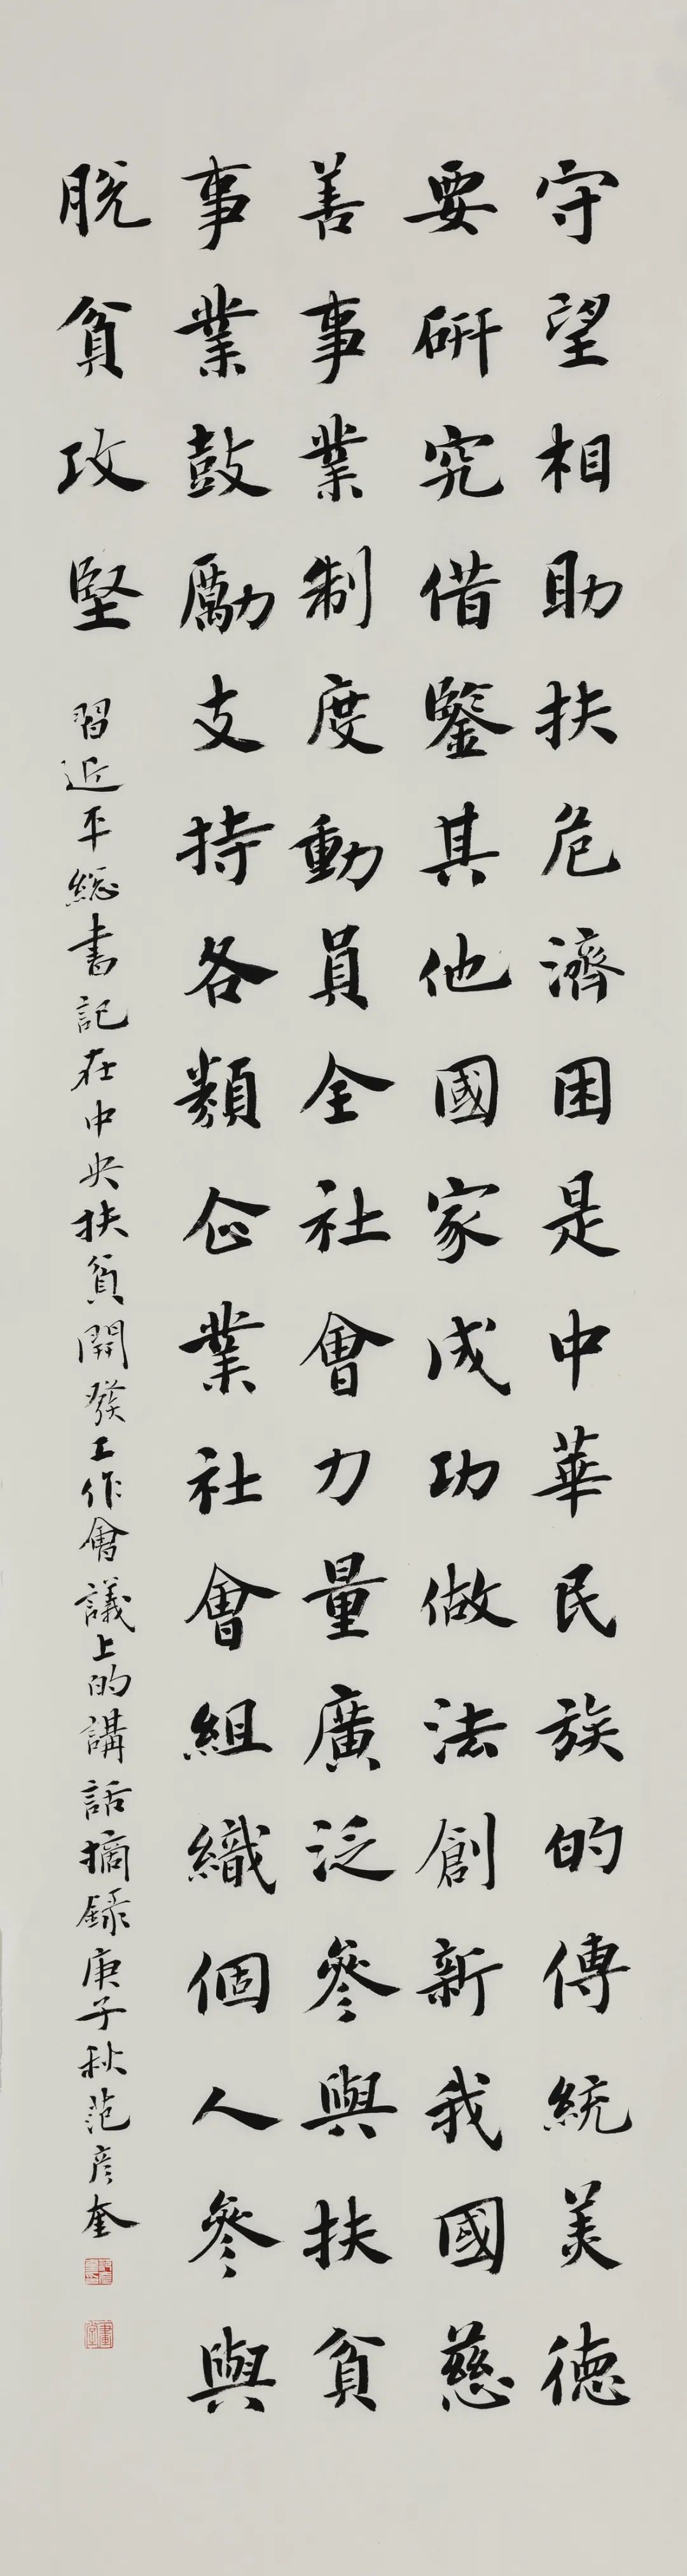 守望相助扶危濟困是中華民族的傳統美德
要研究借鑒其他國家成功做法創新我國慈
善事業制度動員全社會力量廣泛參與扶貧
事業鼓勵支持各類企業社會組織個人參與
脫貧攻堅
習近平總書記在中央扶貧開發工作會議上的講話摘錄庚子秋范彦奎